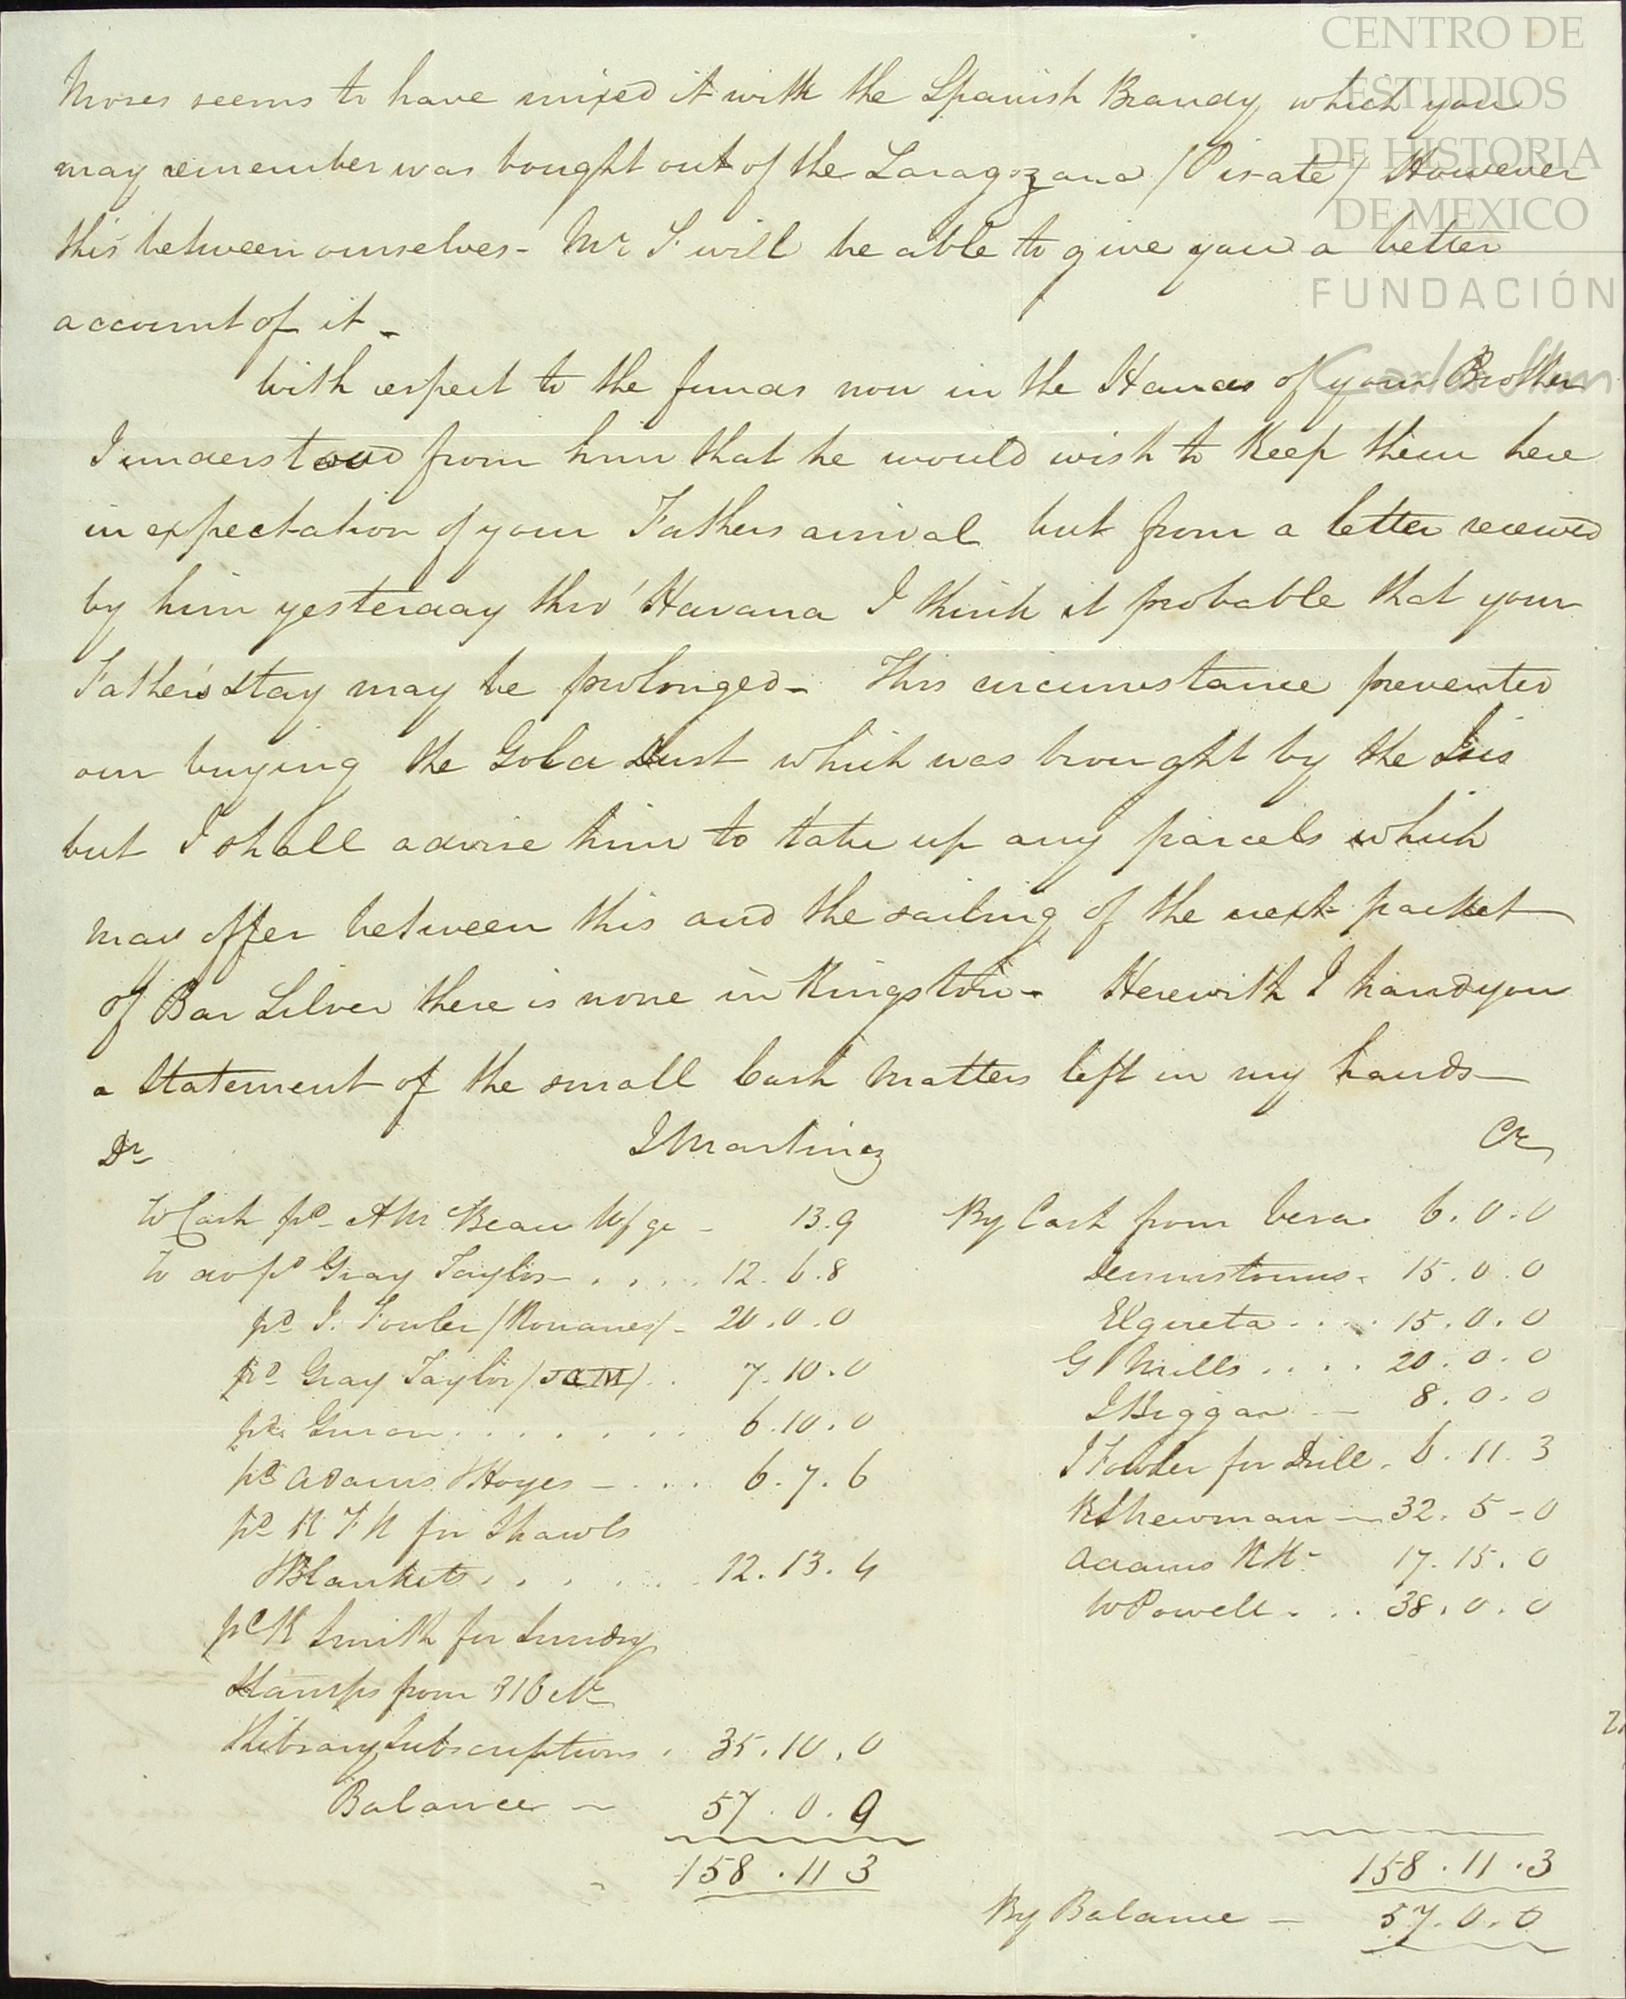 Moses seems to have mixed it with the Spanish Brandy which you
may remember was bought out of the Zaragozana /Pirate/ However
this between ourselves - Mr S. will be able to give you a better
account of it -
With respect to the funds now in the Hands of your Brother
I understood from him that he would wish to Keep them here
in expectation of your Fathers arrival but from a letter received
by him yesterday thro' Havana I think it probable that your
Father's stay may be prolonged - This circumstance prevented
our buying the Gold Dust which was brought by the Isis
but I shall advise him to take up any parcels which
may offer between this and the sailing of the next packet
of Bar Silver there is none in Kingston - Herewith I hand you
a Statement of the small Cash Matters left in my hands -
Dr J Martinez Cr
To Cash pd A McBean - 13.9
To do pd Gray Taylor - . . . . 12.6.8
pd J. Fowler - 20.0.0
pd Gray Taylor . . 7.10.0
pd . . . . . . . 6.10.0
pd Adams & Hoyes - . . . 6.7.6
pd for Shawls
& Blankets . . . . . 12.13.4
pd Smith for Sundry
Stamps from
& Library Subscriptions . 35.10.0
Balance - 57.0.0
158.11 3
By Cash from Vera . 6.0.0
Dennistouns . 15.0.0
Elgueta . . . . 15.0.0
G Mills . . . . 20.0.0
J Biggar - 8.0.0
J Fowler for Drill . 6.11.3
Newman - 32.5-0
Adams 17.15.0
W Powell . . . 38.0.0
158.11.3
By Balance - 57.0.0
CENTRO DE
ESTUDIOS
DE HISTORIA
DE MEXICO
FUNDACIÓN
Carlos Slim